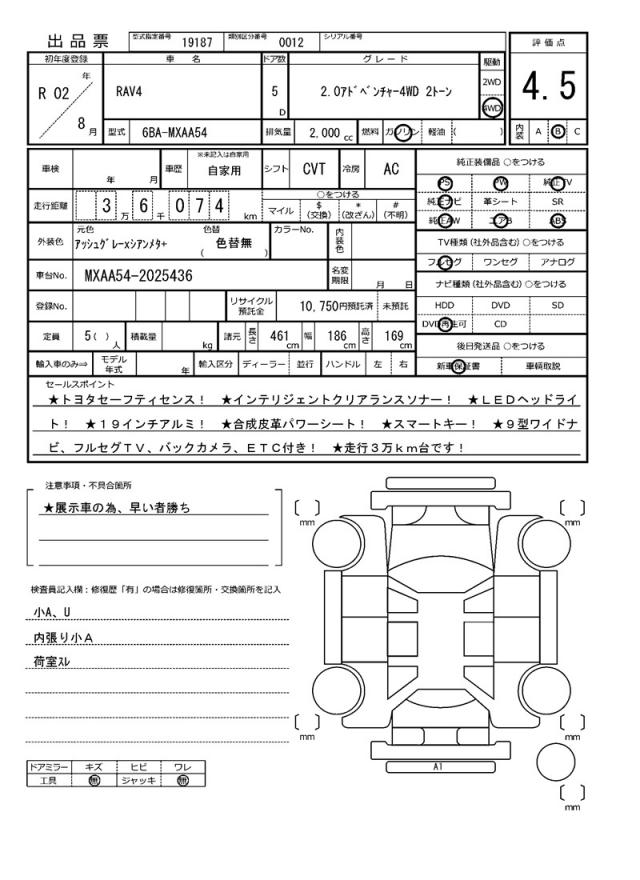 出品票 型式指定番号 19187 類別区分番号 0012 シリアル番号
初年度登録 車名 ドア数 グレード 駆動 評価点
R 02 年 8 月 RAV4 5 D 2.0アドベンチャー4WD 2トーン 2WD 4WD 4.5
型式 6BA-MXAA54 排気量 2,000 cc 燃料 ガソリン 軽油 ( ) 内装 A B C
車検 年 月 車歴 ※未記入は自家用 自家用 シフト CVT 冷房 AC
純正装備品 ○をつける
PS PW 純正TV
走行距離 3万6千074 km ○をつける マイル $(交換) *(改ざん) #(不明)
純正ナビ 革シート SR
純正AW エアB ABS
外装色 元色 アッシュグレーxシアンメタ+ 色替 ( 色替無 ) カラーNo. 内装色
TV種類 (社外品含む) ○をつける
フルセグ ワンセグ アナログ
車台No. MXAA54-2025436 名変期限 月 日
ナビ種類 (社外品含む) ○をつける
登録No. リサイクル預託金 10,750円預託済 未預託
HDD DVD SD
DVD再生可 CD
定員 5( ) 人 積載量 kg 諸元 長さ 461 cm 幅 186 cm 高さ 169 cm
後日発送品 ○をつける
輸入車のみ⇒ モデル年式 年 輸入区分 ディーラー 並行 ハンドル 左 右
新車保証書 車輌取説
セールスポイント
★トヨタセーフティセンス! ★インテリジェントクリアランスソナー! ★LEDヘッドライ
ト! ★19インチアルミ! ★合成皮革パワーシート! ★スマートキー! ★9型ワイドナ
ビ、フルセグTV、バックカメラ、ETC付き! ★走行3万km台です!
注意事項・不具合箇所
★展示車の為、早い者勝ち
mm mm
検査員記入欄:修復歴「有」の場合は修復箇所・交換箇所を記入
小A、U
内張り小A
荷室スレ
mm mm
A1
ドアミラー キズ ヒビ ワレ
工具 無 ジャッキ 無
mm